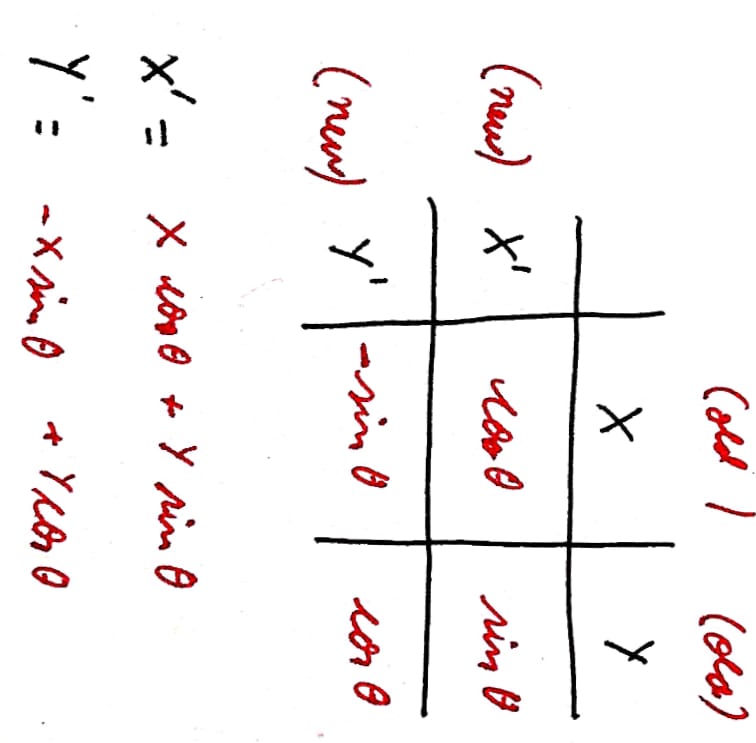 (old) (old)
X Y
(new) X' cosθ sinθ
(new) Y' -sinθ cosθ
X' = X cosθ + Y sinθ
Y' = -X sinθ + Y cosθ